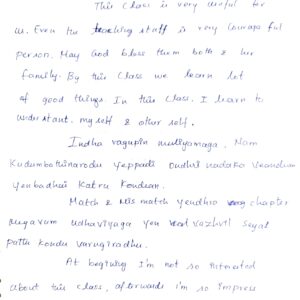 This Class is very useful for
us. Even the teaching staff is very Courage ful
person. May God bless them both & her
family. By this Class we learn lot
of good things. In this Class. I learn to
understant. my self & other self.
Indha vagupin muliyamaga. Nam
Kudumbathinarodu yeppadi Oudhu nadaka Veandum
yenbadhai Katru Kondean.
Match & Mis match yendhra chapter
migavum udhaviyaga yen vazhvil Seyal
pattu kondu varugiradhu.
At begining I'm not so intrested
about this class, afterwards i'm so impress